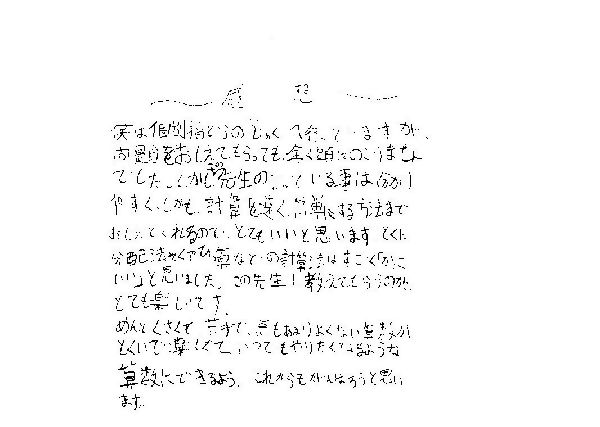 感想
実は個別指どうのじゅくへ行っていますが、
内 をおしえてもらっても、全く頭にのこりません
でした。しかし 先生の言っている事は分かり
やすく、しかも、計算を速く、簡単にする方法まで
おしえてくれるので、とてもいいと思います。とくに
分配法 や 算などの計算法はすごく「かっこ
いい」と思いました。この先生に教えてもらうのが、
とても楽しいです。
めんどくさくて、苦手で、 もあまりよくない算数が
とくいで楽しくて、いつでもやりたくなるような
算数にできるよう、これからもがんばろうと思い
ます。